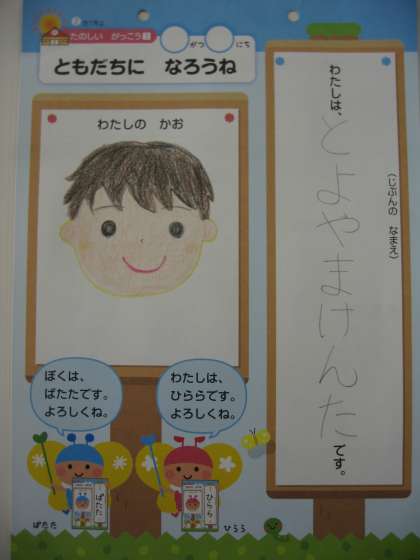 たのしい がっこう 1
がつ
にち
ともだちに なろうね
わたしの かお
わたしは、
とよやまけんた
です。
(じぶんの なまえ)
ぼくは、
ぱたたです。
よろしくね。
わたしは、
ひららです。
よろしくね。
ぱたた
ひらら
ぱたた
ひらら